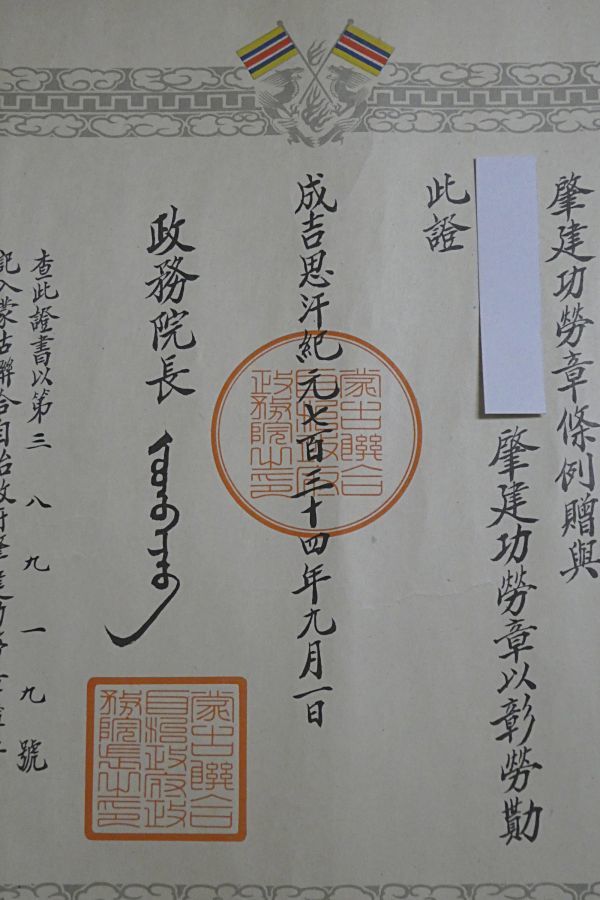 肇建功勞章條例贈與
肇建功勞章以彰勞勩
此證
成吉思汗紀元七百三十四年九月一日
蒙古聯合
自治政府
政務院之印
政務院長
蒙古聯合
自治政府政
務院長之印
查此證書以第三八九一九號
記入蒙古聯合自治政府肇建功勞章